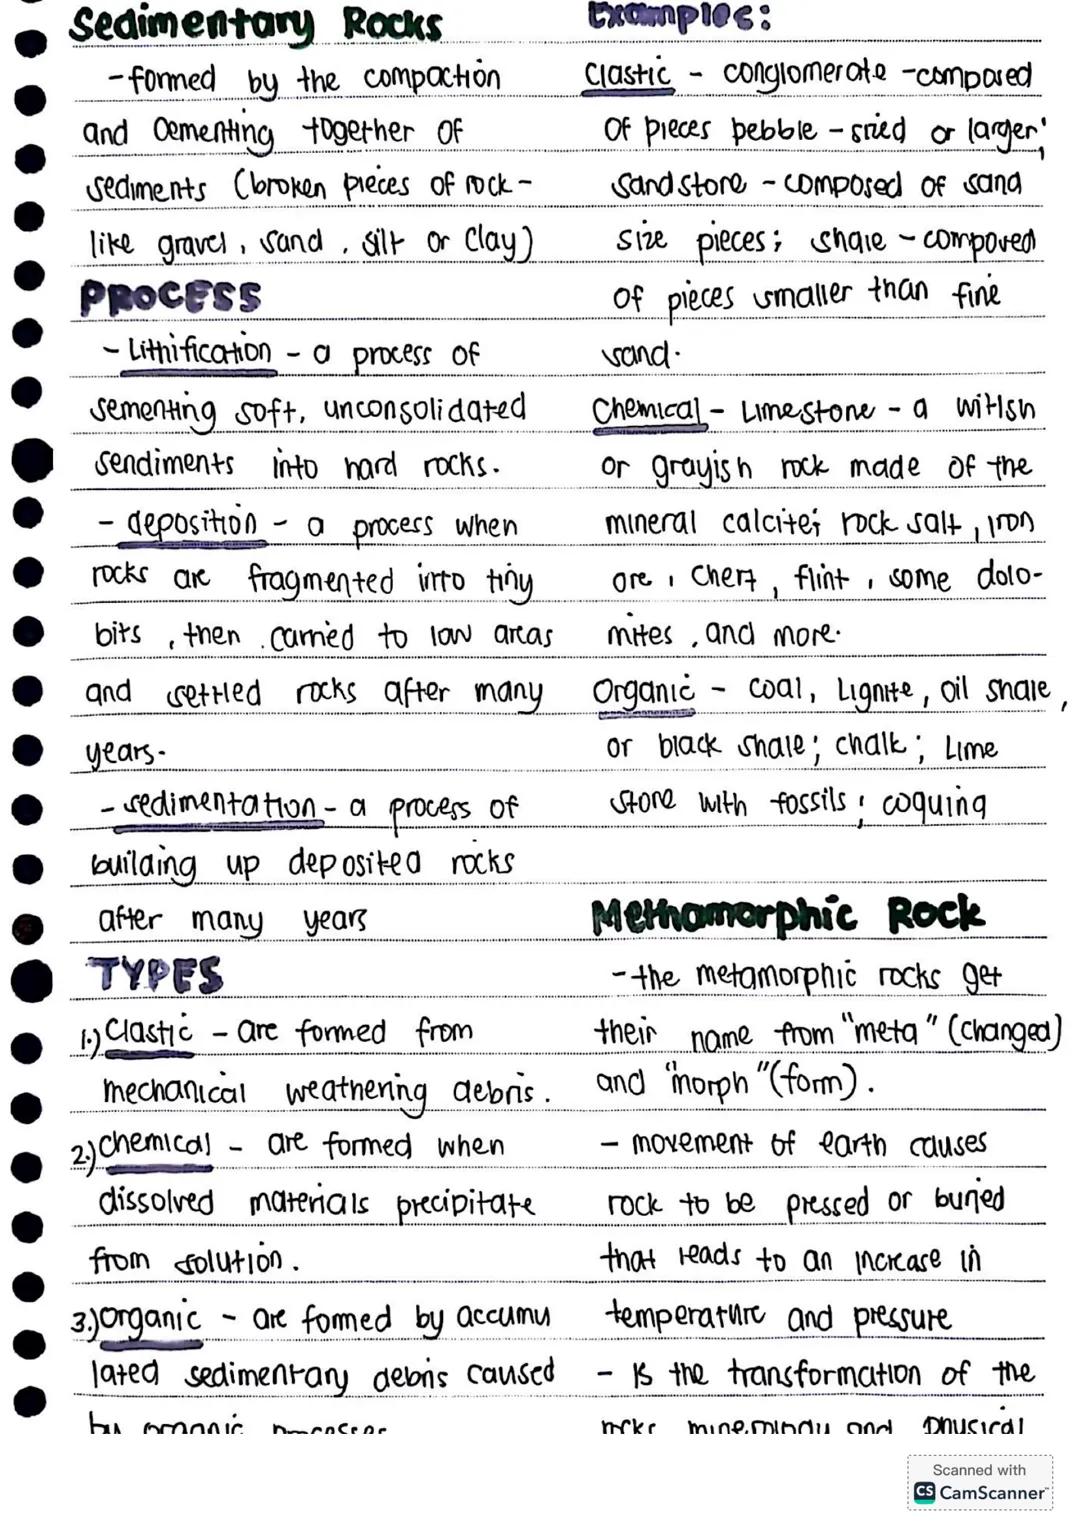 Sedimentary Rocks
-formed by the compaction
and Cementing together of
sediments (broken pieces of rock-
like gravel, sand, silt or Clay)
PROCESS
- Lithification - a process of
sementing soft, unconsolidated
sendiments into hard rocks.
- deposition - a process when
rocks are fragmented into tiny
bits, then carried to low areas
and settled rocks after many
years.
- sedimentation - a process of
building up deposited rocks
after many years
TYPES
1.) Clastic - are formed from
mechanical weathering debris.
2.) chemical - are formed when
dissolved materials precipitate
from solution.
3.) organic - are formed by accumu
lated sedimentary debris caused
by organic processes
Examples:
Clastic - conglomerate -composed
Of pieces pebble - sried or larger;
sandstore - composed of sand
size pieces; shale - compored
of pieces smaller than fine
sand.
Chemical - Limestone - a witish
or grayish rock made of the
mineral calcite; rock salt, iron
ore, Chert, flint, some dolo-
mites, and more.
Organic - coal, Lignite, oil shale,
or black shale; chalk; Lime
stone with fossils; coquing
Methamorphic Rock
-the metamorphic rocks get
their name from "meta" (changed)
and "morph" (form).
- movement of earth causes
rock to be pressed or buried
that leads to an increase in
temperature and pressure
- is the transformation of the
rocks minerology and physical
Scanned with
CS CamScanner